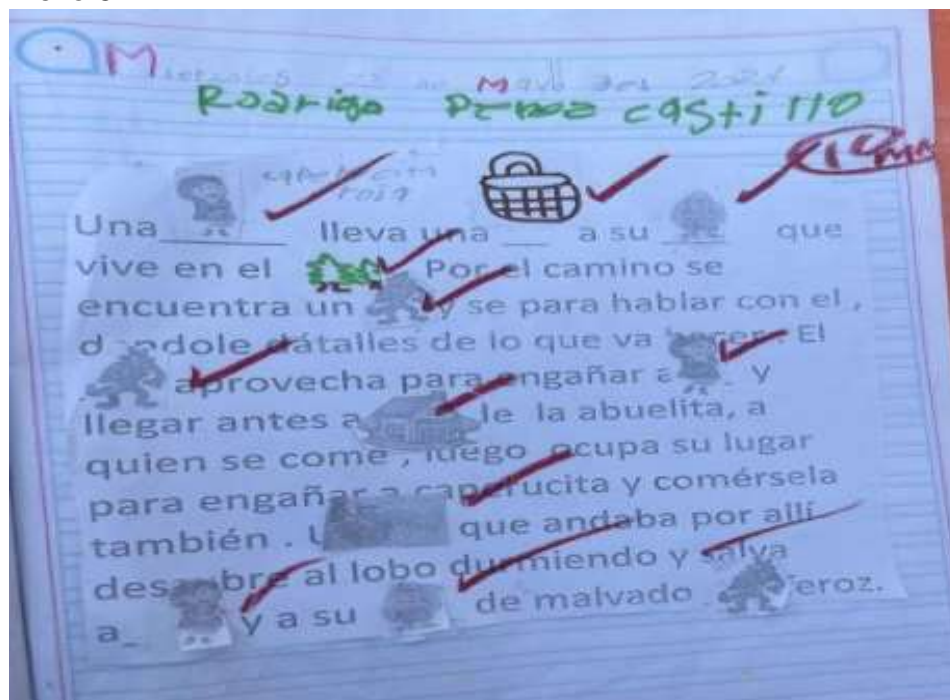 Mayo 2024
Rodrigo Perea castillo
caperucita
roja
Una lleva una a su que
vive en el Por el camino se
encuentra un y se para hablar con el ,
dátalles de lo que va El
aprovecha para engañar a y
llegar antes a la abuelita, a
quien se come , luego ocupa su lugar
para engañar a caperucita y comérsela
también . que andaba por allí
al lobo durmiendo y salva
a_ y a su de malvado